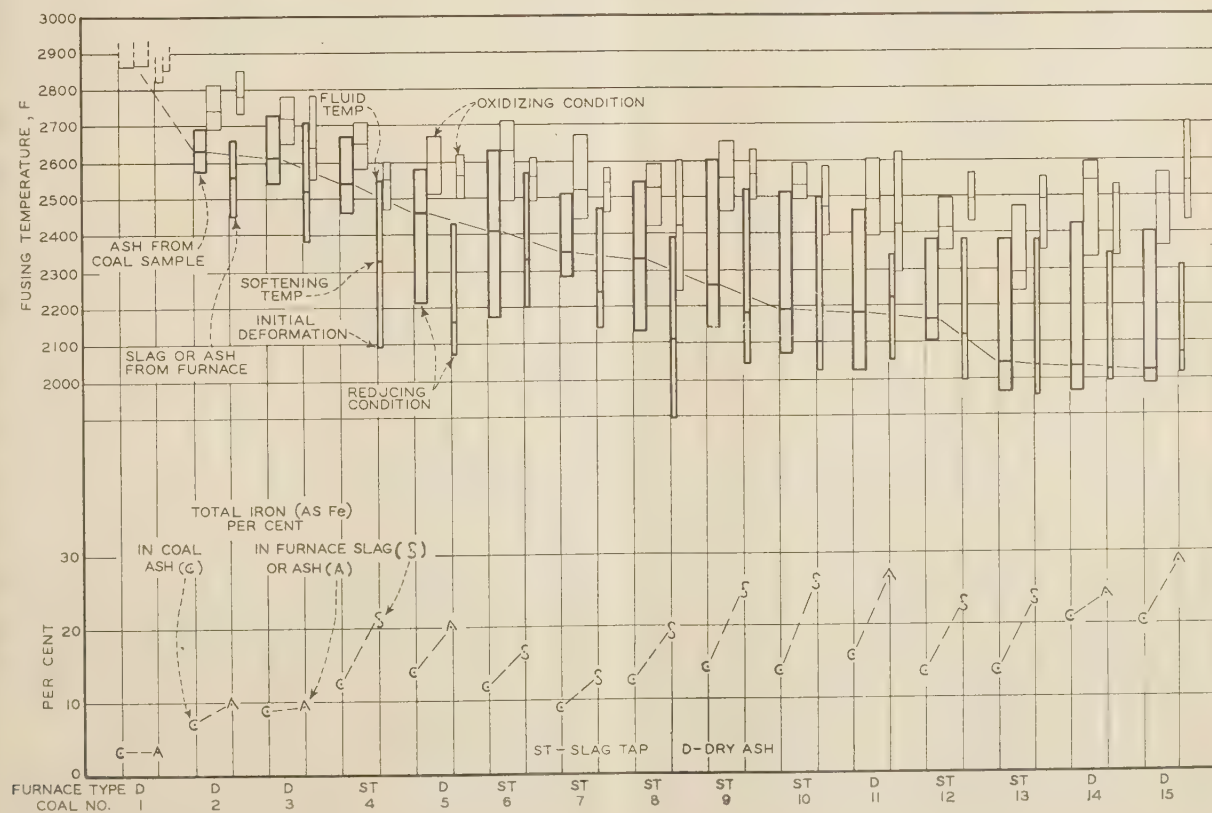 3000
2900
2800
2700
2600
2500
2400
2300
2200
2100
2000
FUSING TEMPERATURE, F
FLUID
TEMP
OXIDIZING CONDITION
ASH FROM
COAL SAMPLE
SOFTENING
TEMP
INITIAL
DEFORMATION
SLAG OR ASH
FROM FURNACE
REDUCING
CONDITION
TOTAL IRON (AS Fe)
PER CENT
IN COAL
ASH (C)
IN FURNACE SLAG (S)
OR ASH (A)
30
20
10
0
PER CENT
C A
C A
C A
C S
C A
C S
C S
C S
C S
C S
C A
C S
C S
C A
C A
ST - SLAG TAP D - DRY ASH
FURNACE TYPE D D D ST D ST ST ST ST ST D ST ST D D
COAL NO. 1 2 3 4 5 6 7 8 9 10 11 12 13 14 15